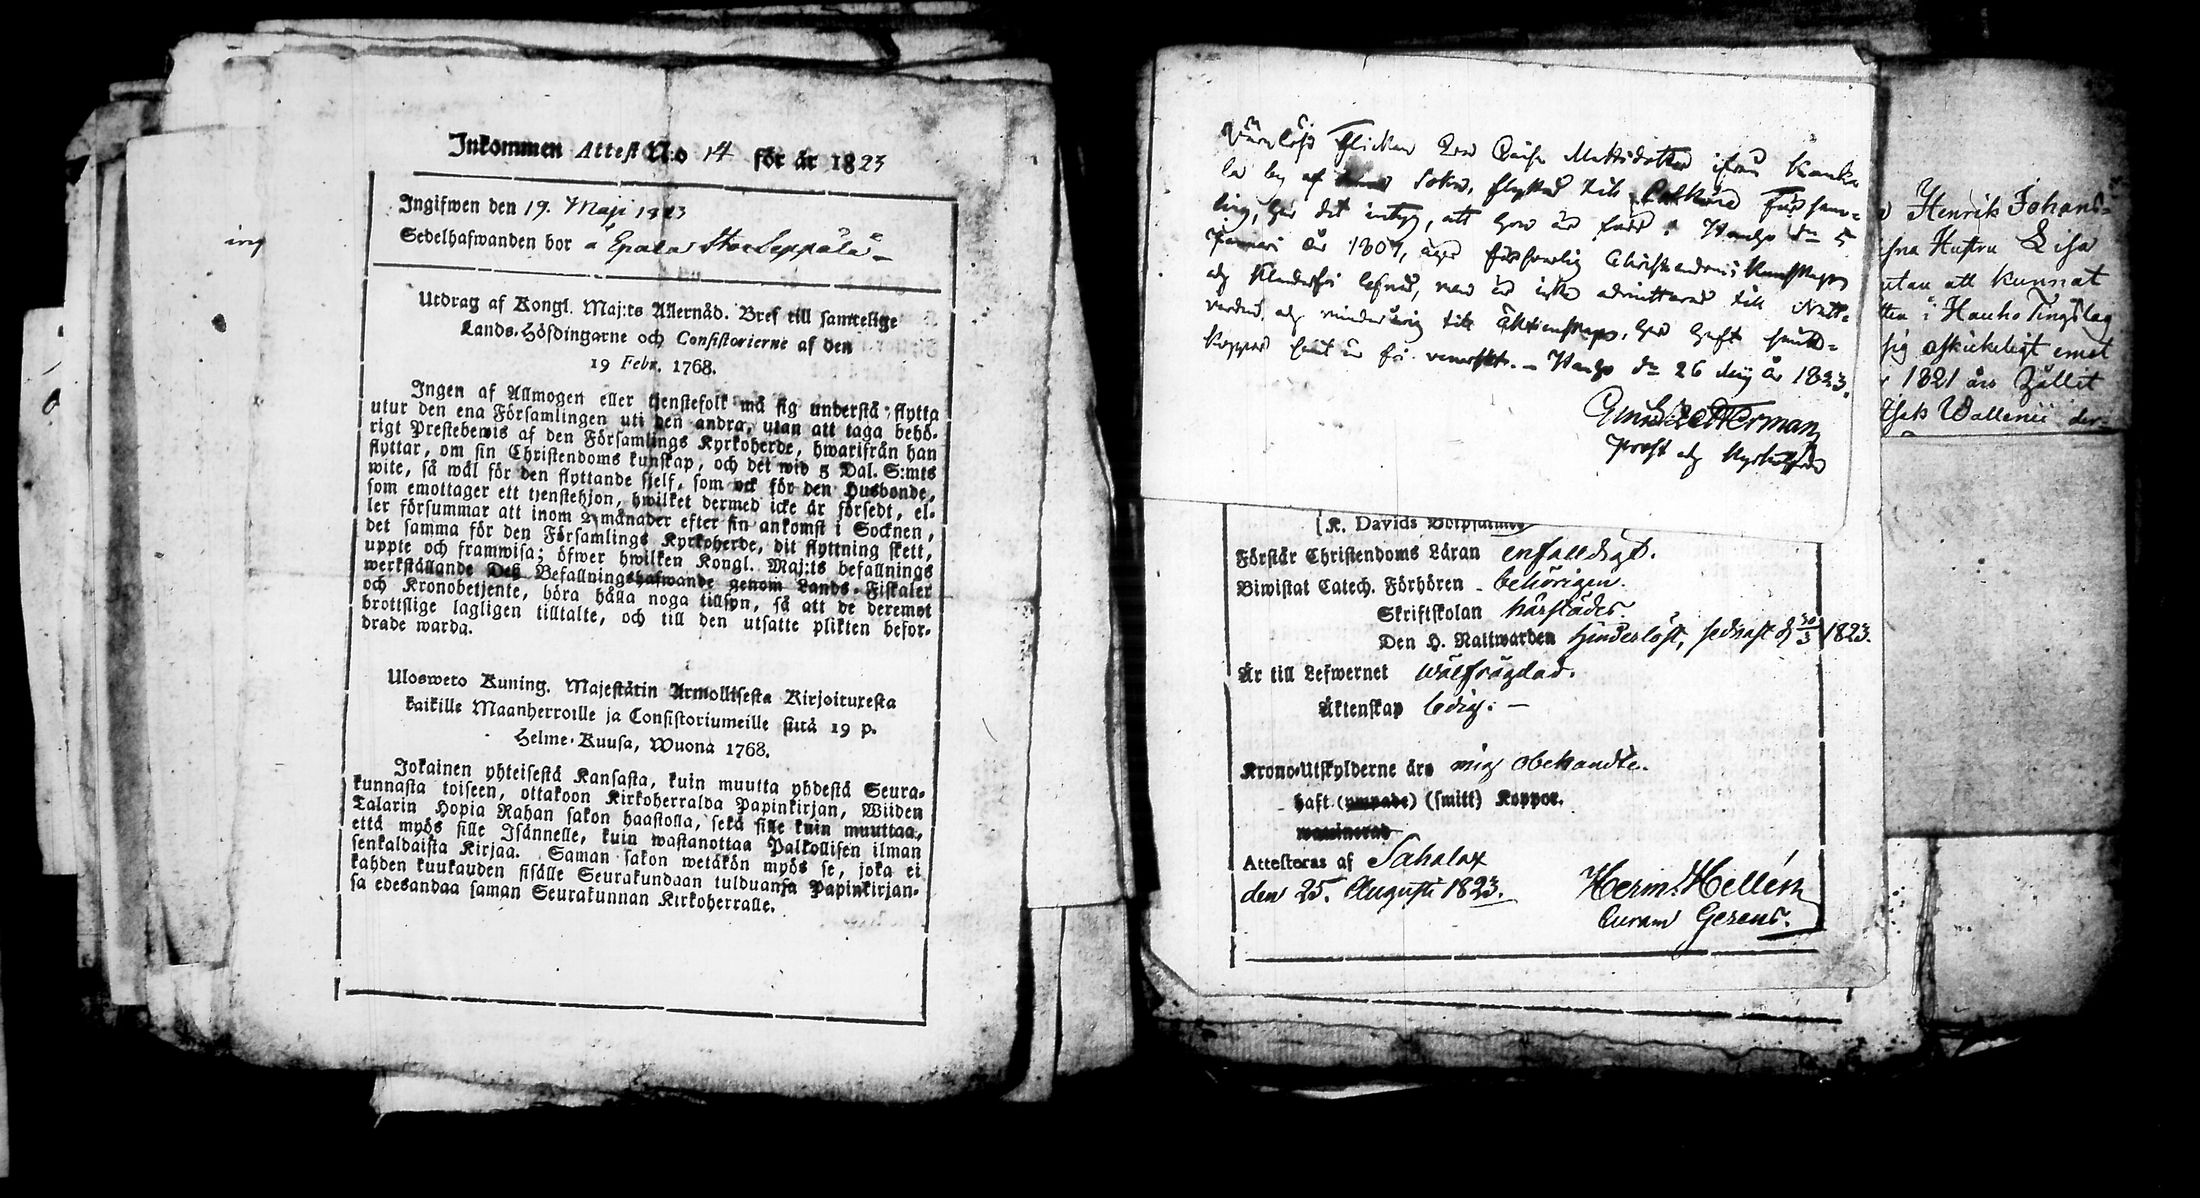 Inkommen Attest No 14 för år 1823
Ingifwen den 19. Maji 1823
Sedelhafwanden bor å Epala Stor Seppälä
Utdrag af Kongl. Maj:ts Allernåd. Bref till samtelige
Lands-Höfdingarne och Consistorierne af den
19 Febr. 1768.
Ingen af Allmogen eller tjenstefolk må sig understå flytta
utur den ena Församlingen uti den andra, utan att taga behö-
rigt Prestebewis af den Församlings Kyrkoherde, hwarifrån han
flyttar, om sin Christendoms kunskap, och det wid 5 Dal. S:mts
wite, så wäl för den flyttande sjelf, som ock för den Husbonde,
som emottager ett tjenstehjon, hwilket dermed icke är försedt, el-
ler försummar att inom 2 månader efter sin ankomst i Socknen,
det samma för den Församlings Kyrkoherde, dit flyttning skett,
uppte och framwisa; öfwer hwilken Kongl. Maj:ts befallnings
werkställande Deß Befallningshafwande genom Lands-Fiskaler
och Kronobetjente, böra hålla noga tillsyn, så att de deremot
brottslige lagligen tilltalte, och till den utsatte plikten befor-
drade warda.
Ulosweto Kuning. Majestätin Armollisesta Kirjoituxesta
kaikille Maanherroille ja Consistoriumeille siitä 19 p.
Helme-Kuusa, Wuona 1768.
Jokainen yhteisestä Kansasta, kuin muutta yhdestä Seura-
kunnasta toiseen, ottakoon Kirkoherralda Papinkirjan, Wiiden
Talarin Hopia Rahan sakon haastolla, sekä sille kuin muuttaa,
että myös sille Isännelle, kuin wastanottaa Palkollisen ilman
senkaldaista Kirjaa. Saman sakon wetäkön myös se, joka ei
kahden kuukauden sisälle Seurakundaan tulduansa Papinkirjan-
sa edesandaa saman Seurakunnan Kirkoherralle.
ing
Flickan Mattsdotter ifrån
by af Sokn, flyttar till Församm-
ling, det intyg, att hon är född i d. 5
Januari år 1807, äger Christendoms Kunskap
och lefnad, men är icke admitterad till Natt-
varden, och till Äktenskap, har haft smitt-
koppor d. 26 Maij år 1823.
Zetterman
Prost och Kyrkoherde
[K. Davids
Förstår Christendoms Läran enfaldigt.
Biwistat Catech. Förhören behörigen.
Skriftskolan härstädes
Den H. Nattwarden hinderlöst, sednast d 30/3 1823.
Är till Lefwernet wälfrägdad.
Äktenskap ledig. —
Krono-Utskylderne äro mig obekandte.
haft (ympade) (smitt) Koppor.
Attesteras af Sahalax
den 25. Augusti 1823.
Herm. Hellén
Curam Gerens.
Henrik Johans-
Hustru Lisa
utan att kunnat
i Hauho Tingslag
sig oskickeligt emot
1821 års
Wallenii der-